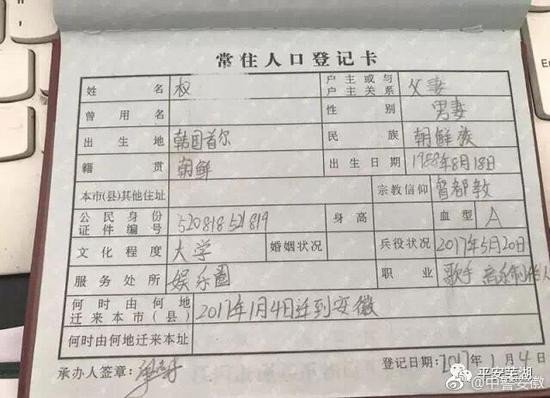 常住人口登记卡
姓名 权 户主或与户主关系 父妻
曾用名 性别 男妻
出生地 韩国首尔 民族 朝鲜族
籍贯 朝鲜 出生日期 1988年8月18日
本市(县)其他住址 宗教信仰 督都教
公民身份证件编号 520818521819 身高 血型 A
文化程度 大学 婚姻状况 兵役状况 2017年5月20日
服务处所 娱乐圈 职业 歌手
何时由何地迁来本市(县) 2017年1月4日迁到安徽
何时由何地迁来本址
承办人签章: 登记日期:2017年1月4日
@平安芜湖
@中警安徽